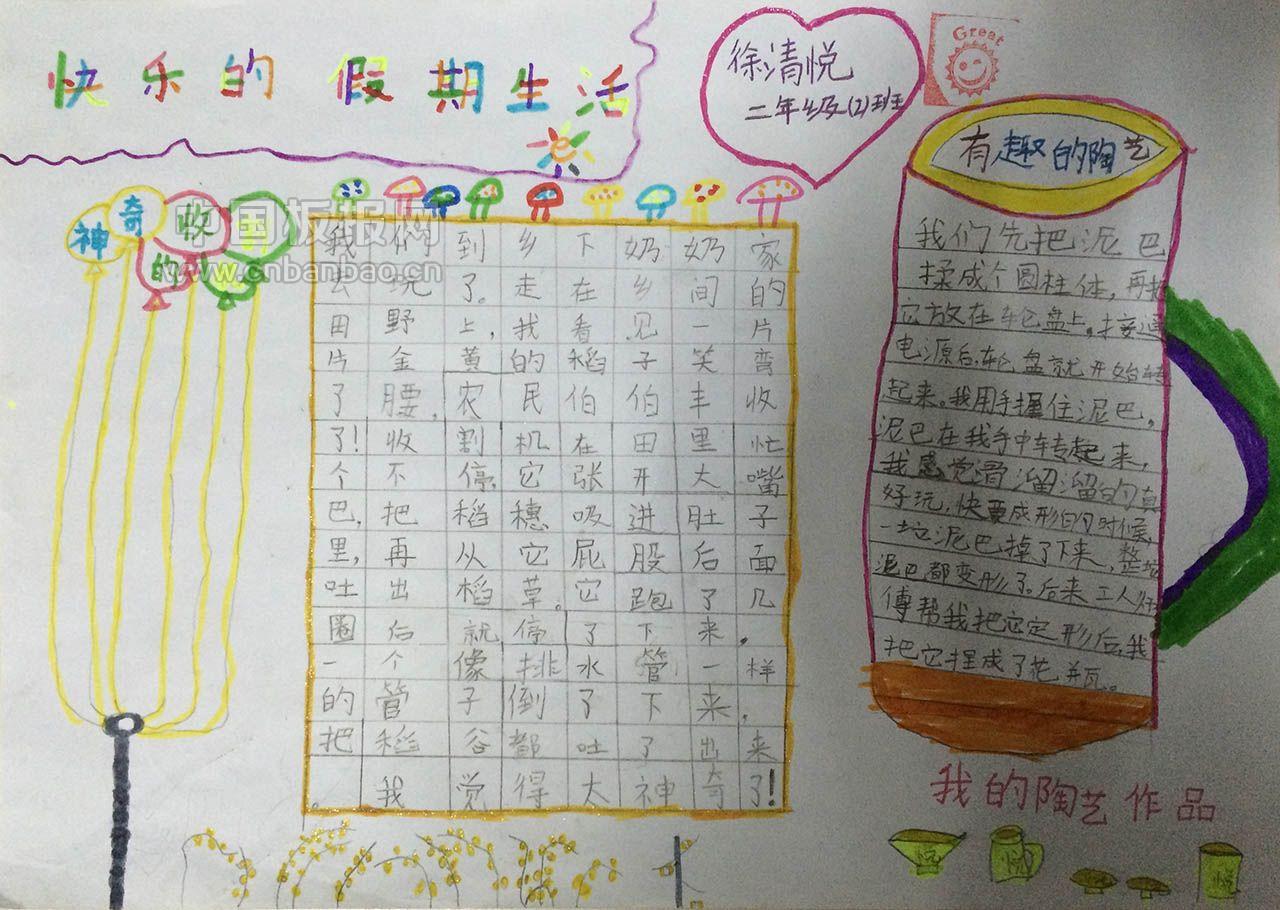 快乐的 假期生活
徐清悦
二年级(2)班
Great
神奇的收
中国板报网
www.cnbanbao.cn
我们到乡下奶奶家
去玩了。走在乡间的
田野上,我看见一片
片金黄的稻子笑弯
了腰,农民伯伯丰收
了!收割机在田里忙
个不停,它张开大嘴
巴,把稻穗吸进肚子
里,再从它屁股后面
吐出稻草。它跑了几
圈后就停了下来,
一个像排水管一样
的管子倒了下来,
把稻谷都吐了出来
。我觉得太神奇了!
有趣的陶艺
我们先把泥巴
揉成个圆柱体,再把
它放在轮盘上。接通
电源后,轮盘就开始转
起来。我用手握住泥巴,
泥巴在我手中转起来,
我感觉滑溜溜的真
好玩,快要成形的时候,
一坨泥巴掉了下来,整坨
泥巴都变形了。后来工人师
傅帮我把它定形后,我
把它捏成了花瓶。
我的陶艺作品
悦
悦
悦